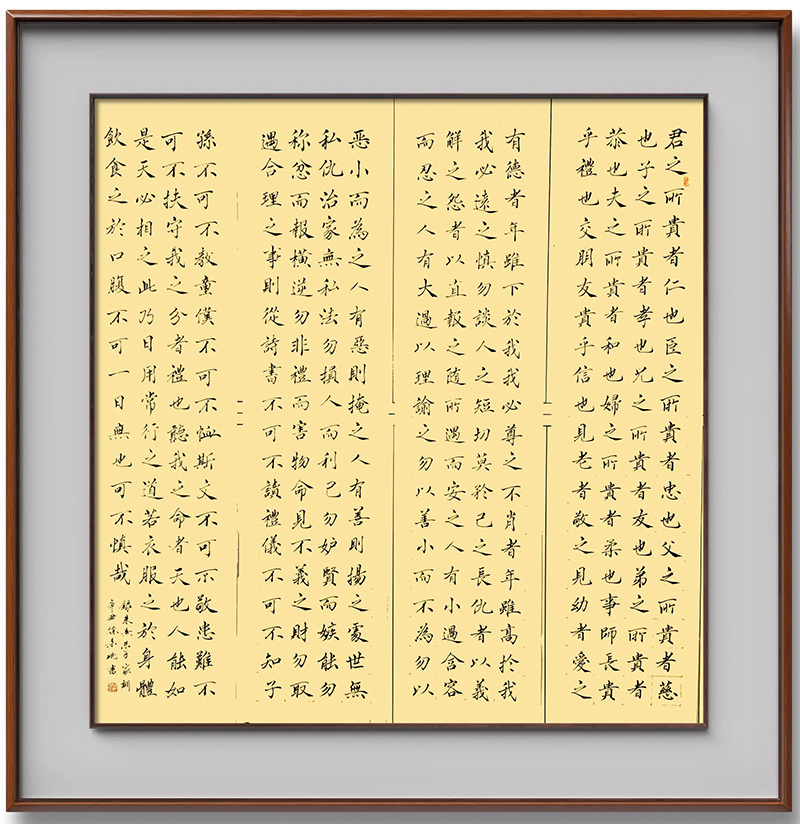 君之所貴者仁也臣之所貴者忠也父之所貴者慈
也子之所貴者孝也兄之所貴者友也弟之所貴者
恭也夫之所貴者和也婦之所貴者柔也事師長貴
乎禮也交朋友貴乎信也見老者敬之見幼者愛之
有德者年雖下於我我必尊之不肖者年雖高於我
我必遠之慎勿談人之短切莫矜己之長仇者以義
解之怨者以直報之隨所遇而安之人有小過含容
而忍之人有大過以理諭之勿以善小而不為勿以
惡小而為之人有惡則掩之人有善則揚之處世無
私仇治家無私法勿損人而利己勿妒賢而嫉能勿
称忿而報橫逆勿非禮而害物命見不義之財勿取
遇合理之事則從詩書不可不讀禮儀不可不知子
孫不可不教童僕不可不恤斯文不可不敬患難不
可不扶守我之分者禮也聽我之命者天也人能如
是天必相之此乃日用常行之道若衣服之於身體
飲食之於口腹不可一日無也可不慎哉
錄朱熹朱子家訓
辛丑徐書